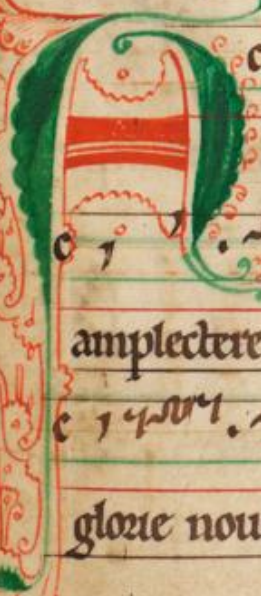 A
amplectere
glorie nou